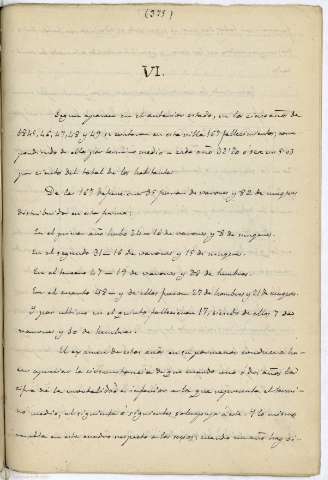 (375)
VI.
Segun aparece en el anterior estado, en los cinco años de
1845, 46, 47, 48 y 49 se contaron en esta villa 167 fallecimientos; corres
pondiendo de ellos por término medio a cada año
por ciento del total de los habitantes.
De las 167 defunciones 85 fueron de varones y 82 de mugeres
distribuidas en esta forma:
En el primer año hubo 24 = 16 de varones y 8 de mugeres.
En el segundo 31 = 16 de varones y 15 de mugeres.
En el tercero 47 = 19 de varones y 28 de hembras.
En el cuarto 48 = y de ellas fueron 27 de hombres y 21 de mugeres.
Y por ultimo en el quinto fallecieron 17, siendo de ellos 7 de
varones y 10 de hembras.
El examen de estos años en su pormenor conduce a ha-
cer apreciar la circunstancia de que cuando uno o dos años la
cifra de la mortalidad es inferior a la que representa el térmi-
no medio, el siguiente o siguientes sobrepuja a este. Y lo mismo
en este cuadro respecto a los sexos; cuando un año hay di-